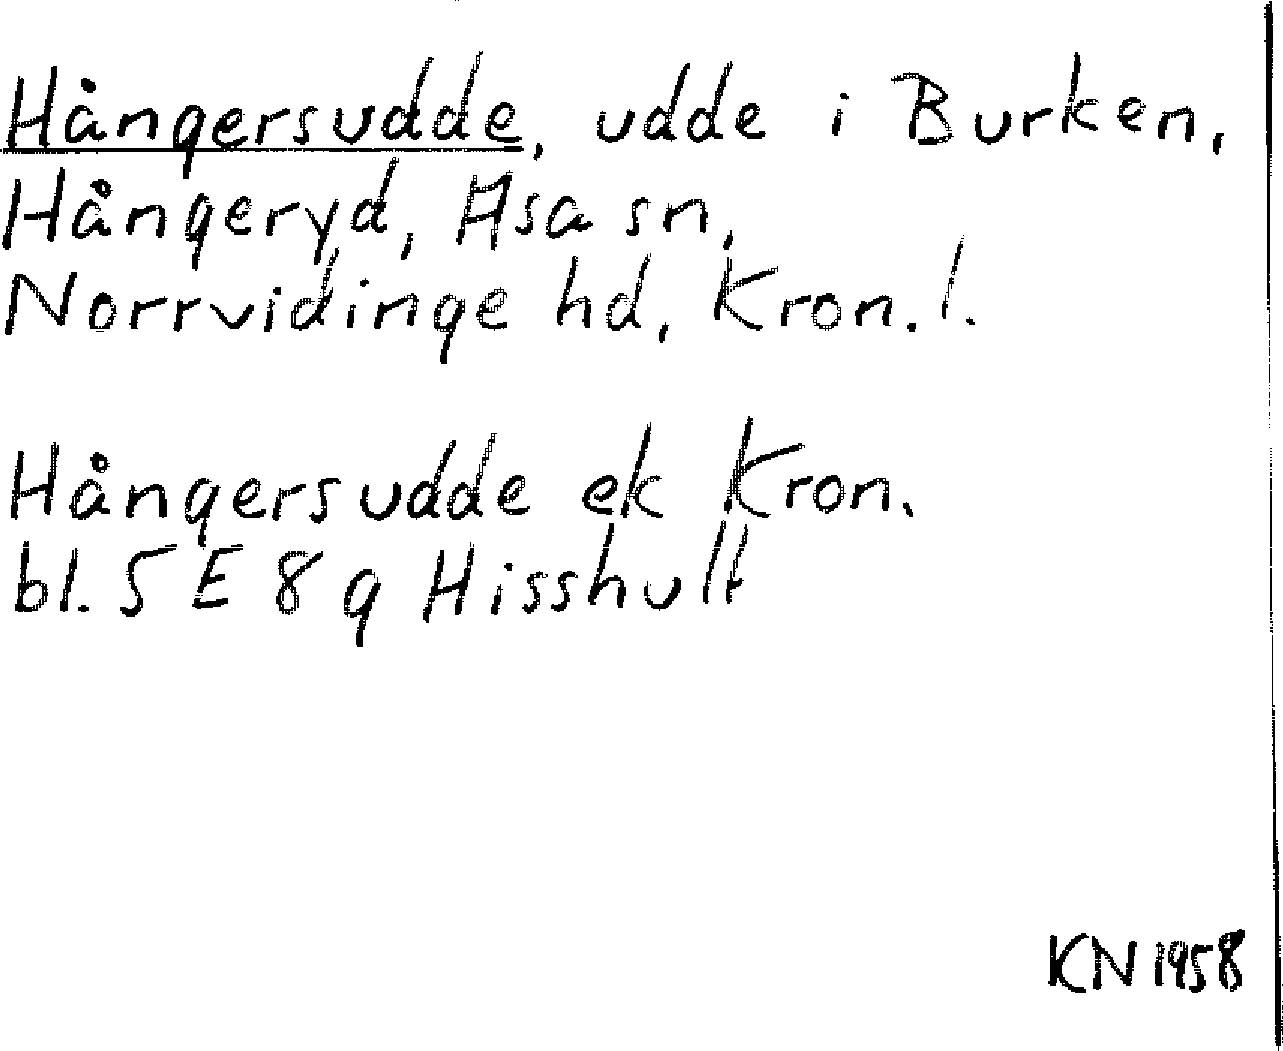 Hångersudde, udde i Burken,
Hångeryd, Asa sn,
Norrvidinge hd, Kron. l.
Hångersudde ek Kron.
bl. 5 E 8 g Hisshult
KN 1958